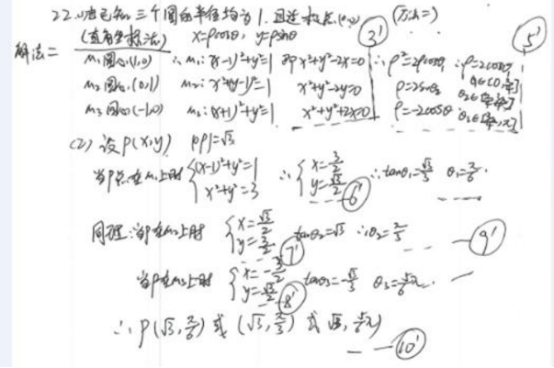 22.(1)由已知三个圆的半径均为1.且过极点(0,0) (方法二)
解法二 (直角坐标法) x=ρcosθ, y=ρsinθ 3' 5'
M₁圆心(1,0) ∴M₁:(x-1)²+y²=1 即x²+y²-2x=0 ∴ρ²=2ρcosθ, ∴ρ=2cosθ, θ₁∈[0,π/4]
M₂圆心(0,1) M₂:x²+(y-1)²=1 x²+y²-2y=0 ρ=2sinθ θ₂∈[π/4,3π/4]
M₃圆心(-1,0) M₃:(x+1)²+y²=1 x²+y²+2x=0 ρ=-2cosθ θ₃∈[3π/4,π]
(2) 设P(x,y) |OP|=√3
当P点在M₁上时 {(x-1)²+y²=1 x²+y²=3 ∴{x=3/2 y=√3/2 6' ∴tanθ₁=√3/3 θ₁=π/6
同理:当P在M₂上时 {x=√3/2 y=3/2 7' tanθ₂=√3 ∴θ₂=π/3 9'
当P在M₃上时 {x=-3/2 y=√3/2 8' tanθ₃=-√3/3 θ₃=5/6π
∴P(√3,π/6)或(√3,π/3)或(√3,5/6π)
10'